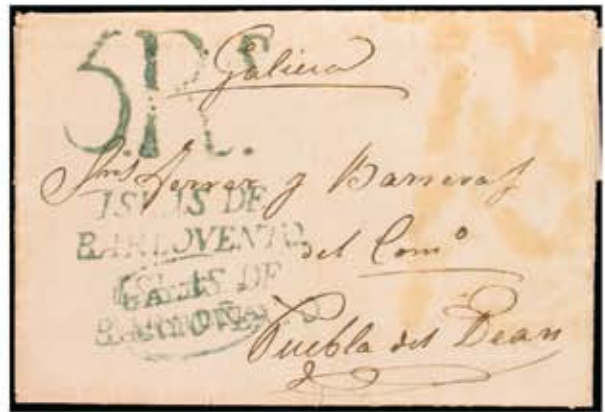 5R.s
Galicia
Sres Ferrer y Barreras
ISLAS DE
BARLOVENTO
del Como
ISLAS DE
Puebla del Dean